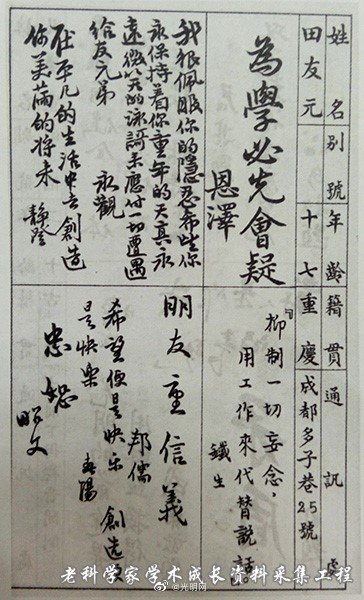 姓名 別號 年齡 籍貫 通訊處
田友元 十七 重慶 成都多子巷25號
為學必先會疑
恩澤
我狠佩服你的隱忍希望你
永保持着你童年的天真永
遠微笑的詠謌來應付一切遭遇
給友元弟 永觀
在平凡的生活中去創造
你美滿的將來 靜
『抑制一切妄念，
用工作來代替說話。
鐵生
朋友重信義
邦儒
希望便是快樂 創造更
是快樂 春陽
忠恕 昭文
老科学家学术成长资料采集工程
@光明网